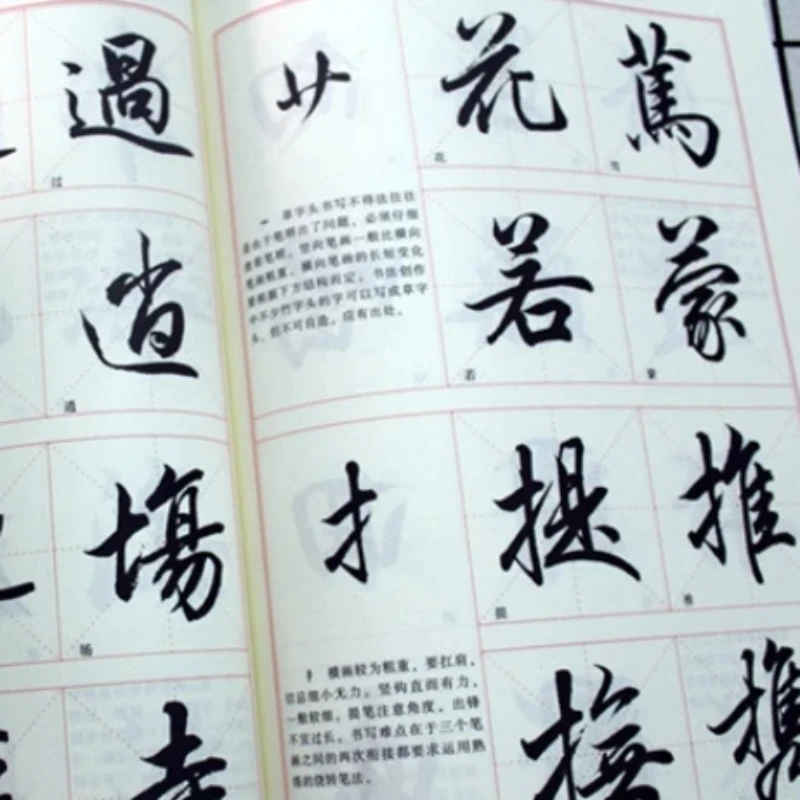 過
过
逍
逍
場
场
艹
花
花
若
若
蒙
蒙
草字头书写不得法往往
是由于笔顺出了问题,必须仔细
竖向笔画一般比横向
笔画粗重,横向笔画的长短变化
要根据下方结构而定,书法创作
中不少竹字头的字可以写成草字
头,但不可自造,应有出处。
扌
提
提
推
推
横画较为粗重,要扛肩,
切忌细小无力,竖钩直而有力,
一般较细,提笔注意角度,出锋
不宜过长,书写难点在于三个笔
画之间的两次衔接都要求运用熟
练的绕转笔法。
撫
携